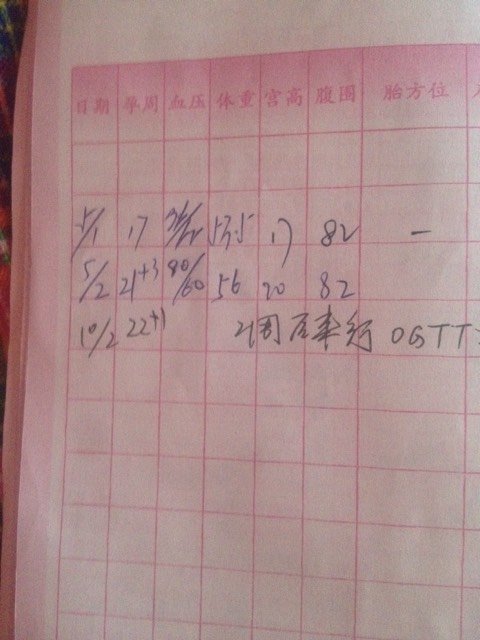 日期 孕周 血压 体重 宫高 腹围 胎方位
5/1 17 53.5 17 82 —
5/2 21+3 90/60 56 20 82
10/2 22+1 2周后来行 OGTT